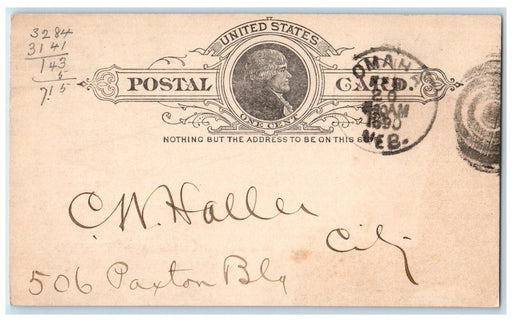 3284
3141
143
5
7.15
UNITED STATES
POSTAL CARD.
ONE CENT
NOTHING BUT THE ADDRESS TO BE ON THIS
OMAHA
FEB
20
30AM
1890
NEB.
C.W. Haller
City
506 Paxton Blg